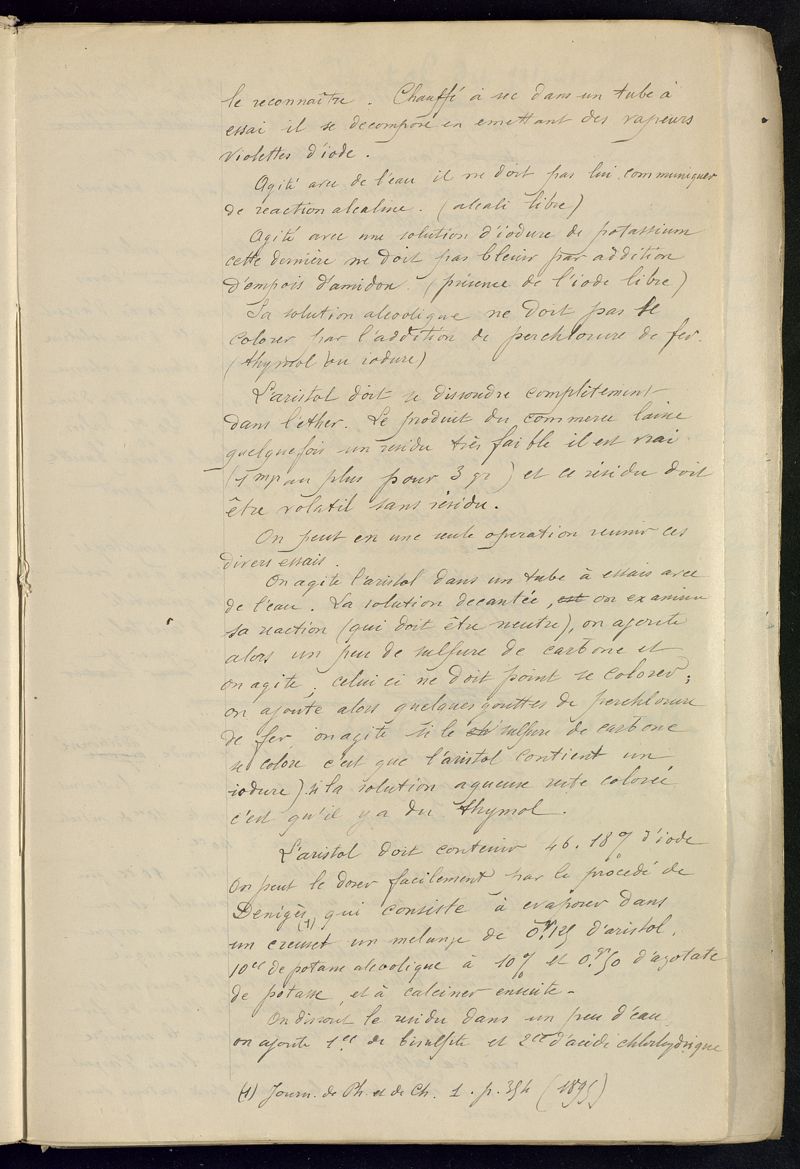 le reconnaître. Chauffé à sec dans un tube à
essai il se decompose en emettant des vapeurs
violettes d'iode.
Agité avec de l'eau il ne doit pas lui communiquer
de reaction alcaline. (alcali libre)
Agité avec une solution d'iodure de potassium
cette dernière ne doit pas bleuir par addition
d'empois d'amidon. (présence de l'iode libre)
Sa solution alcoolique ne doit pas se
colorer par l'addition de perchlorure de fer.
(thymol ou iodure)
L'aristol doit se dissoudre complètement
dans l'éther. Le produit du commerce laisse
quelquefois un residu très faible il est vrai
(1 mp au plus pour 3 gr) et ce résidu doit
être volatil sans résidu.
On peut en une seule operation reunir ces
divers essais.
On agite l'aristol dans un tube à essais avec
de l'eau. La solution decantée, est on examine
sa reaction (qui doit être neutre), on ajoute
alors un peu de sulfure de carbone et
on agite, celui ci ne doit point se colorer;
on ajoute alors quelques gouttes de perchlorure
de fer on agite si le sulfure de carbone
se colore c'est que l'aristol contient un
iodure) si la solution aqueuse reste colorée
c'est qu'il y a du thymol.
L'aristol doit contenir 46.18 % d'iode
On peut le doser facilement par le procédé de
Denigès (1) qui consiste à evaporer dans
un creuset un melange de 0gr,125 d'aristol,
10cc de potasse alcoolique à 10 % et 0gr,50 d'azotate
de potasse, et à calciner ensuite -
On dissout le residu dans un peu d'eau,
on ajoute 1cc de bisulfite et 2cc d'acide chlorhydrique
(1) Journ. de Ph. et de Ch. 1. p. 354 (1895)